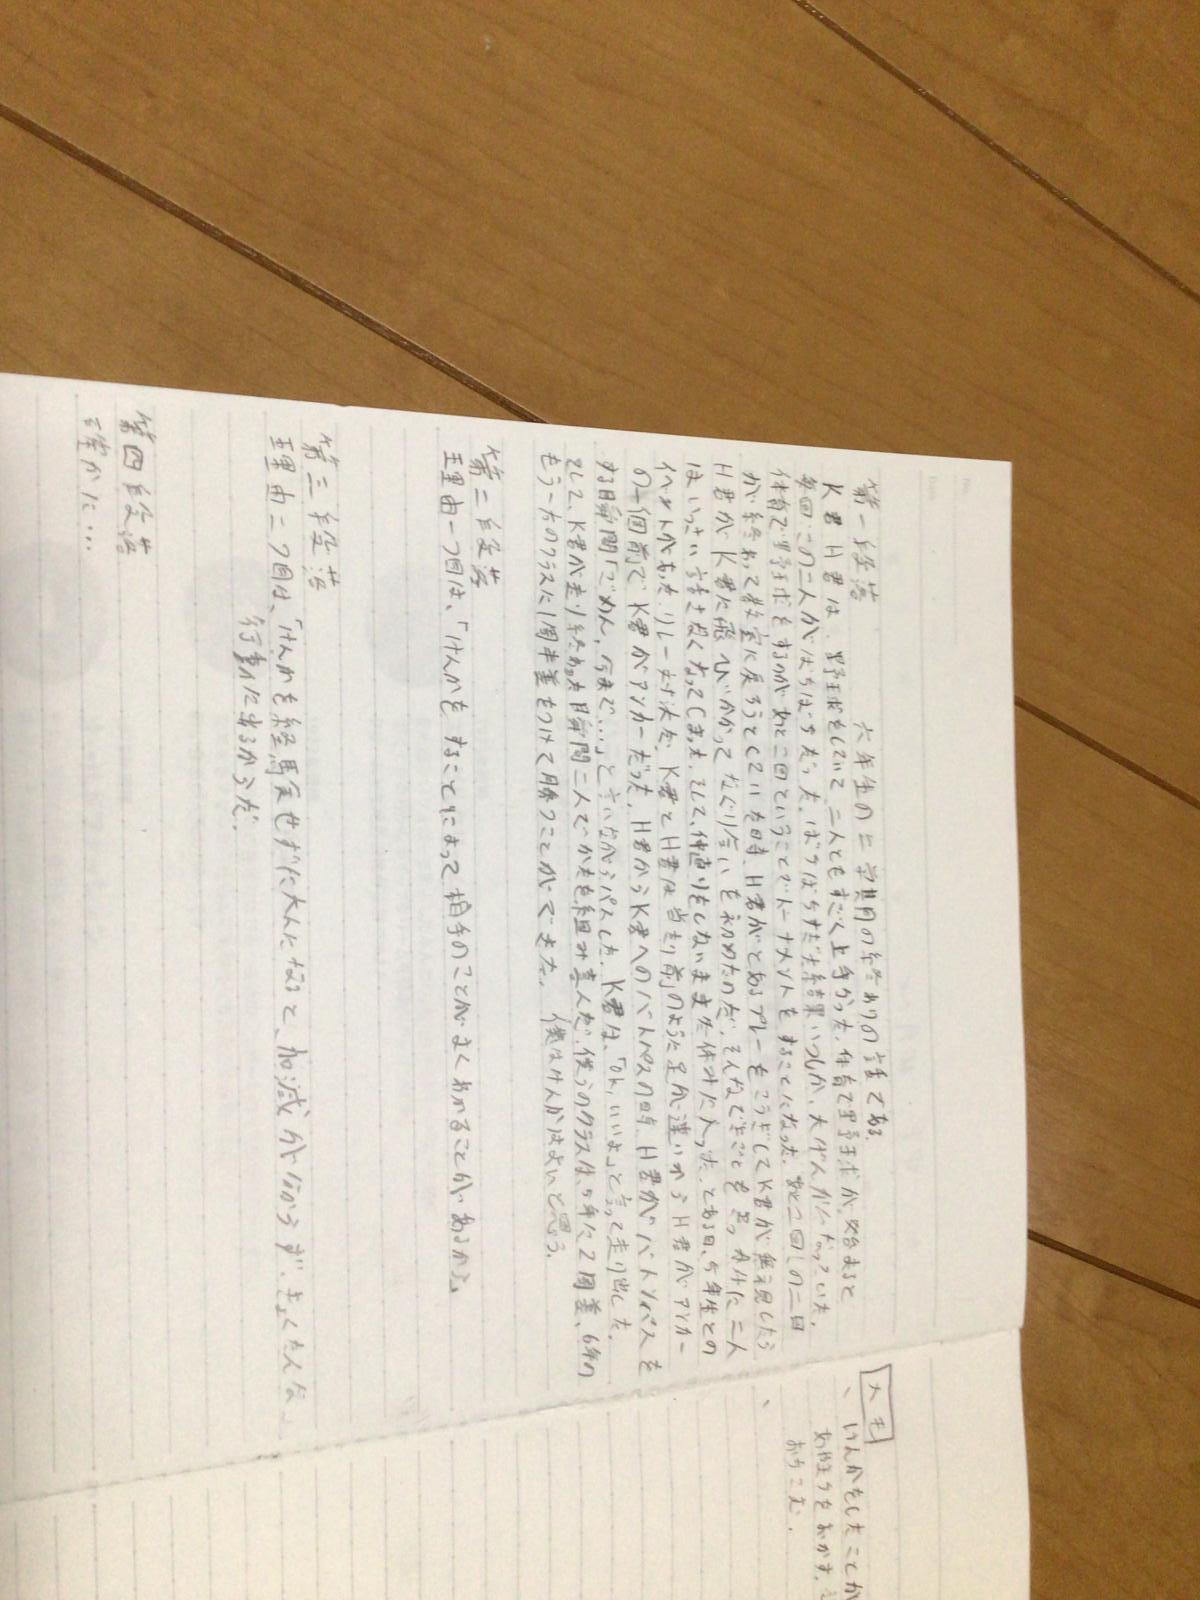 第一段落　六年生の二学期の終わりの話である。
K君H君は、野球をしていて二人ともすごく上手かった。体育で野球が始まると
毎回この二人がばちばちだった。ばちばちすぎた結果いつしか、大げんかになっていた。
体育で野球をするのがあと二回ということでトーナメントをすることになった。二回
が終わって教室に戻ろうとしていた時、H君がとあるプレーをこうぎしてK君が無視したら
H君がK君に飛びかかってなぐり合いを初めたのだ。そんなできごとを二人
はいっさい話さなくなってしまった。そして、仲直りをしないまま休みに入った。とある日、5年生との
イベントがあった。リレー対決だ。K君とH君は当たり前のように足が速いからH君がアンカー
の一個前でK君がアンカーだった。H君からK君へのバトンパスの時、H君がバトンパスを
する瞬間「ごめん、今まで…」と言いながらパスした。K君は、「OK、いいよ」と言って走り出した。
そして、K君が走り終わった瞬間二人でかたを組み喜んだ。僕らのクラスは、5年に2周差、6年の
もう一方のクラスに1周半差をつけて勝つことができた。　僕はけんかはよいと思う。
第二段落
理由一つ目は、「けんかをすることによって相手のことがよくわかることがあるから。
第三段落
理由二つ目は、「けんかを経験せずに大人になると、加減が分からず、きょくたんな」
行動に出るからだ。
第四段落
確かに…
メモ
、けんかをしたことが
おちこむ。
、